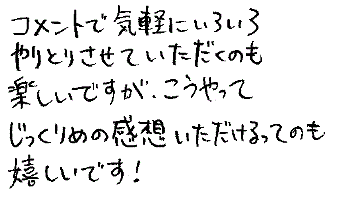 コメントで気軽にいろいろ
やりとりさせていただくのも
楽しいですが、こうやって
じっくりめの感想いただけるってのも
嬉しいです!